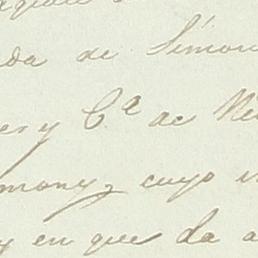 da de Simon
es y C.ª de Ne
mony, cuyo
y en que da a